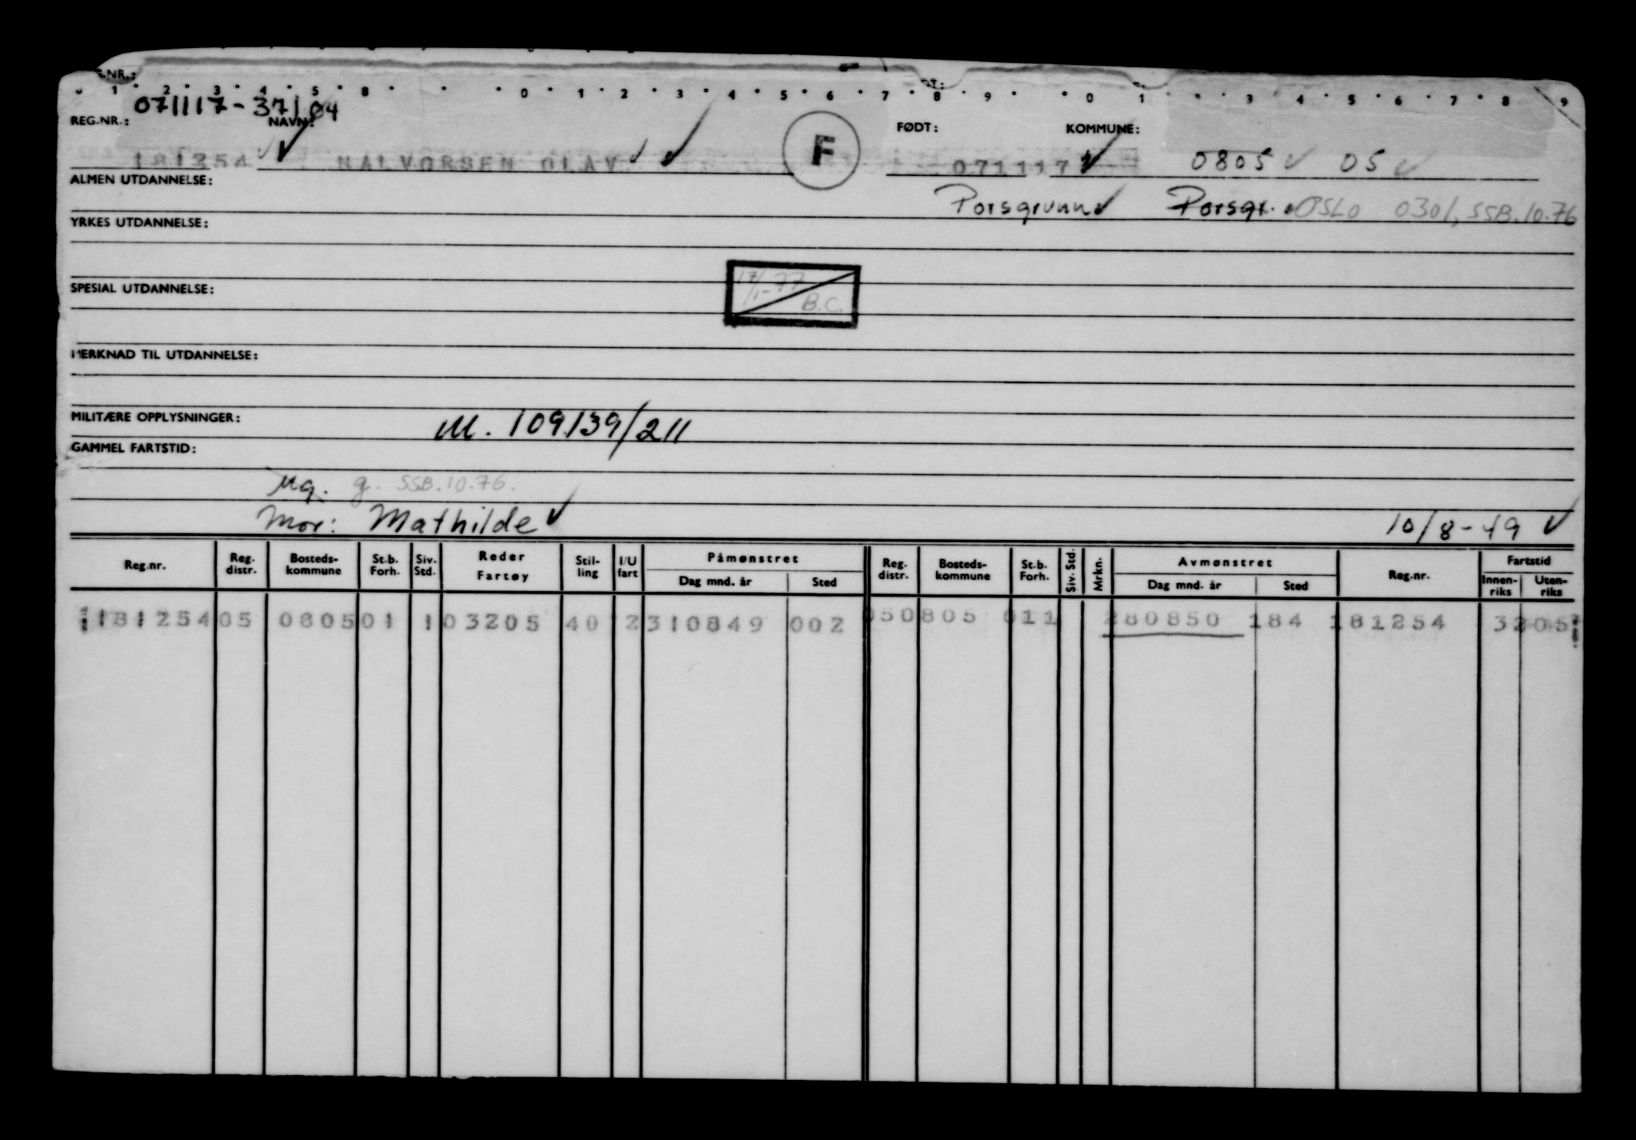 .NR.:
0 1 2 3 4 5 8 0 1 2 3 4 5 6 7 8 9 0 1 3 4 5 6 7 8 9
071117-37104
REG.NR.: NAVN: F FØDT: KOMMUNE:
181254 HALVORSEN OLAV 071117 0805 05
ALMEN UTDANNELSE:
Porsgrunn Porsgr. OSLO 0301, SSB.10.76
YRKES UTDANNELSE:
17/1-77 B.C.
SPESIAL UTDANNELSE:
MERKNAD TIL UTDANNELSE:
MILITÆRE OPPLYSNINGER: M. 109139/211
GAMMEL FARTSTID:
Ug. g. SSB.10.76.
Mor: Mathilde 10/8-49
Reg.nr. Reg. distr. Bosteds-kommune St.b. Forh. Siv. Std. Reder Fartøy Stil-ling I/U fart Påmønstret Dag mnd. år Sted Reg. distr. Bosteds-kommune St.b. Forh. Siv. Std. Mrkn. Avmønstret Dag mnd. år Sted Reg.nr. Fartstid Innen-riks Uten-riks
181254 05 0805 01 1 03205 40 2 310849 002 05 0805 011 280850 184 181254 3205